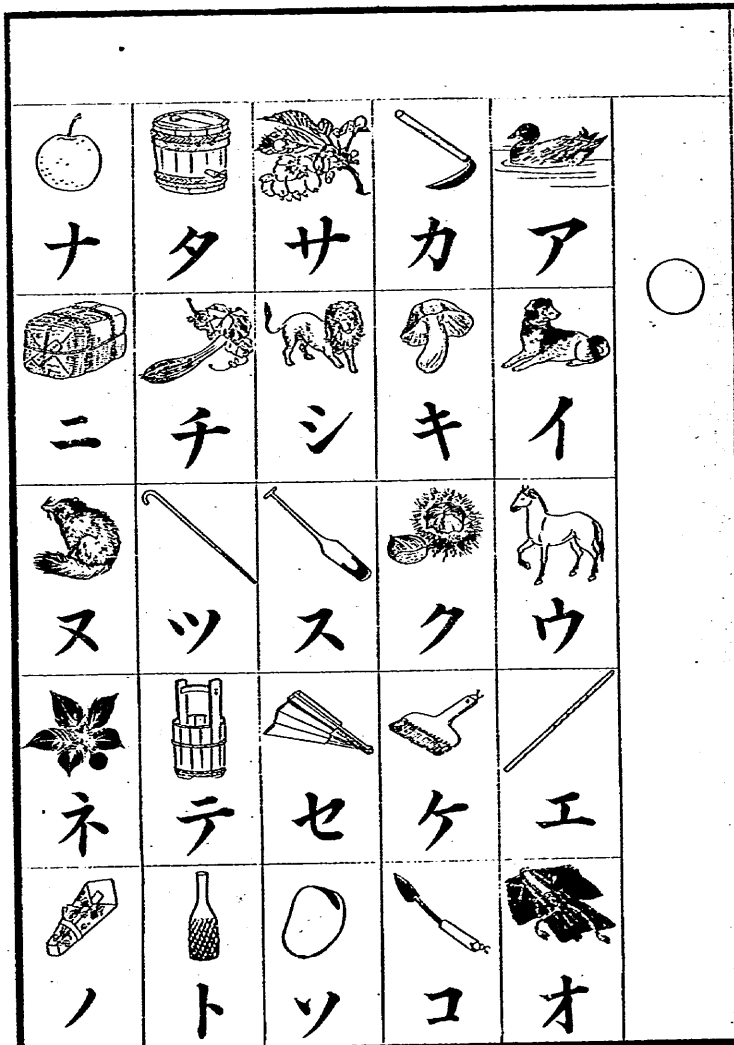 アイウエオ
カキクケコ
サシスセソ
タチツテト
ナニヌネノ